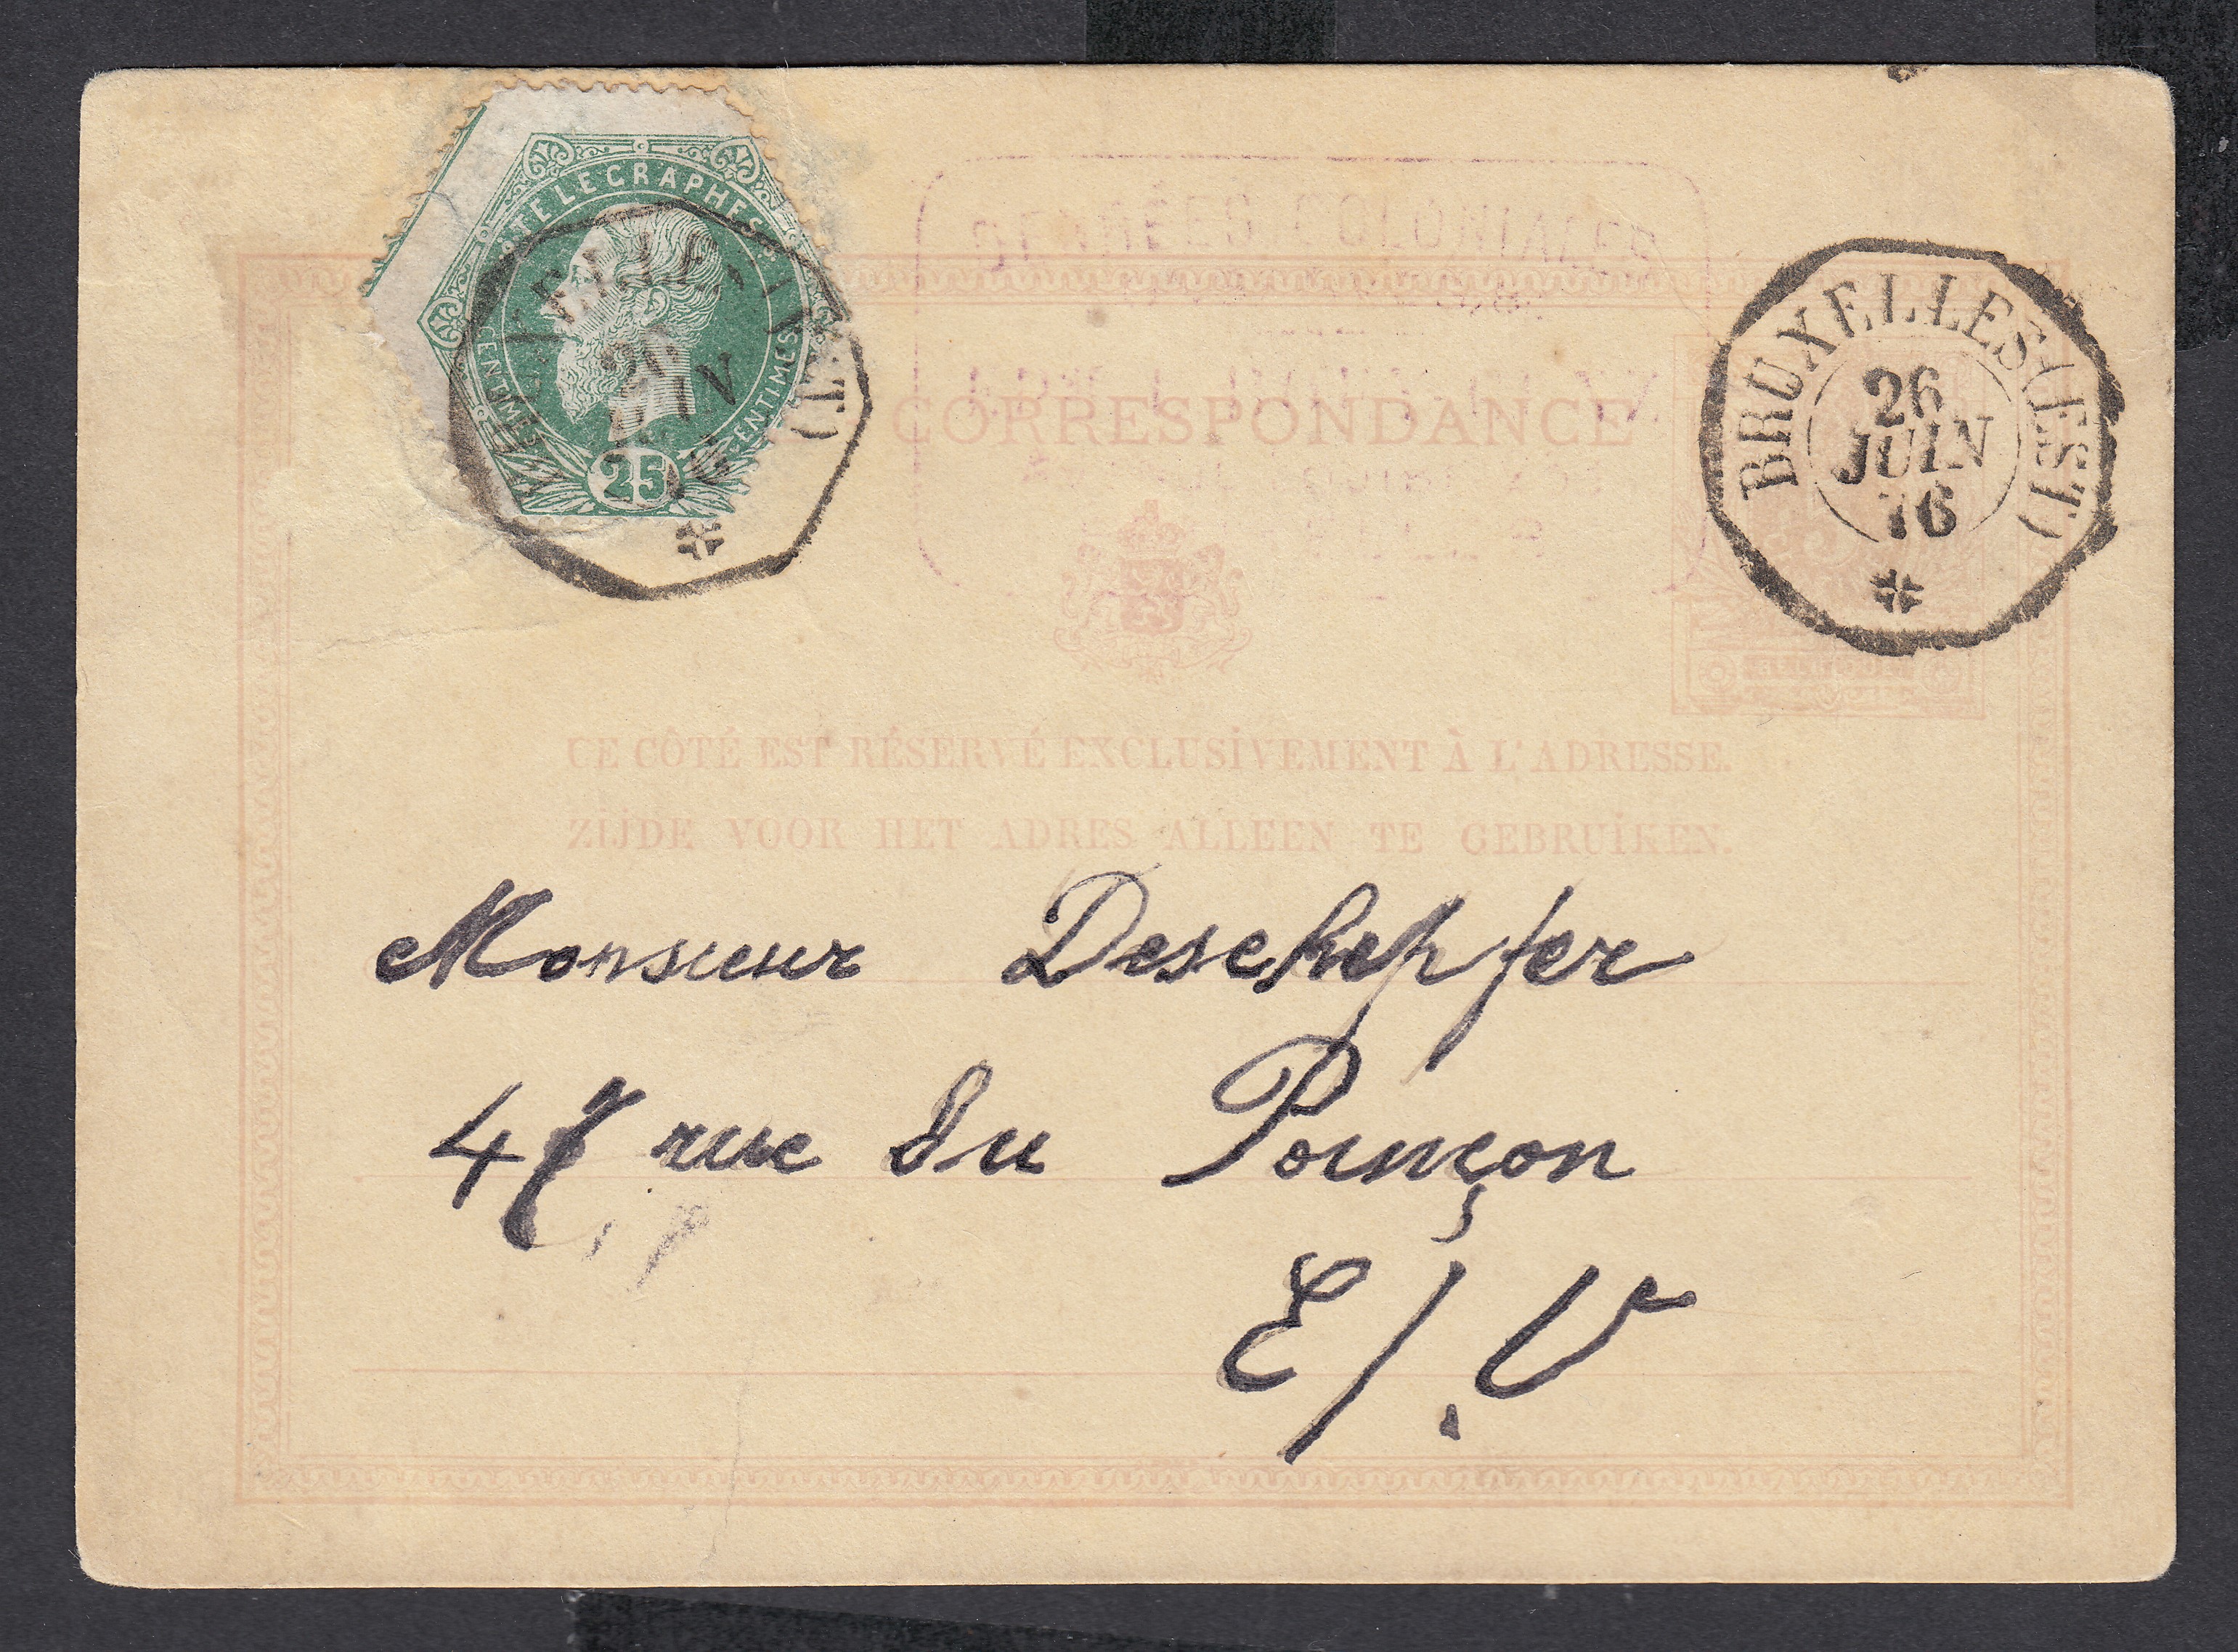 TÉLÉGRAPHES
CENTIMES 25 CENTIMES
BRUXELLES (EST)
26
JUIN
76
DENRÉES COLONIALES
CORRESPONDANCE
CE CÔTÉ EST RÉSERVÉ EXCLUSIVEMENT À L'ADRESSE.
ZIJDE VOOR HET ADRES ALLEEN TE GEBRUIKEN.
Monsieur Deschepper
47 rue du Poinçon
E/.V